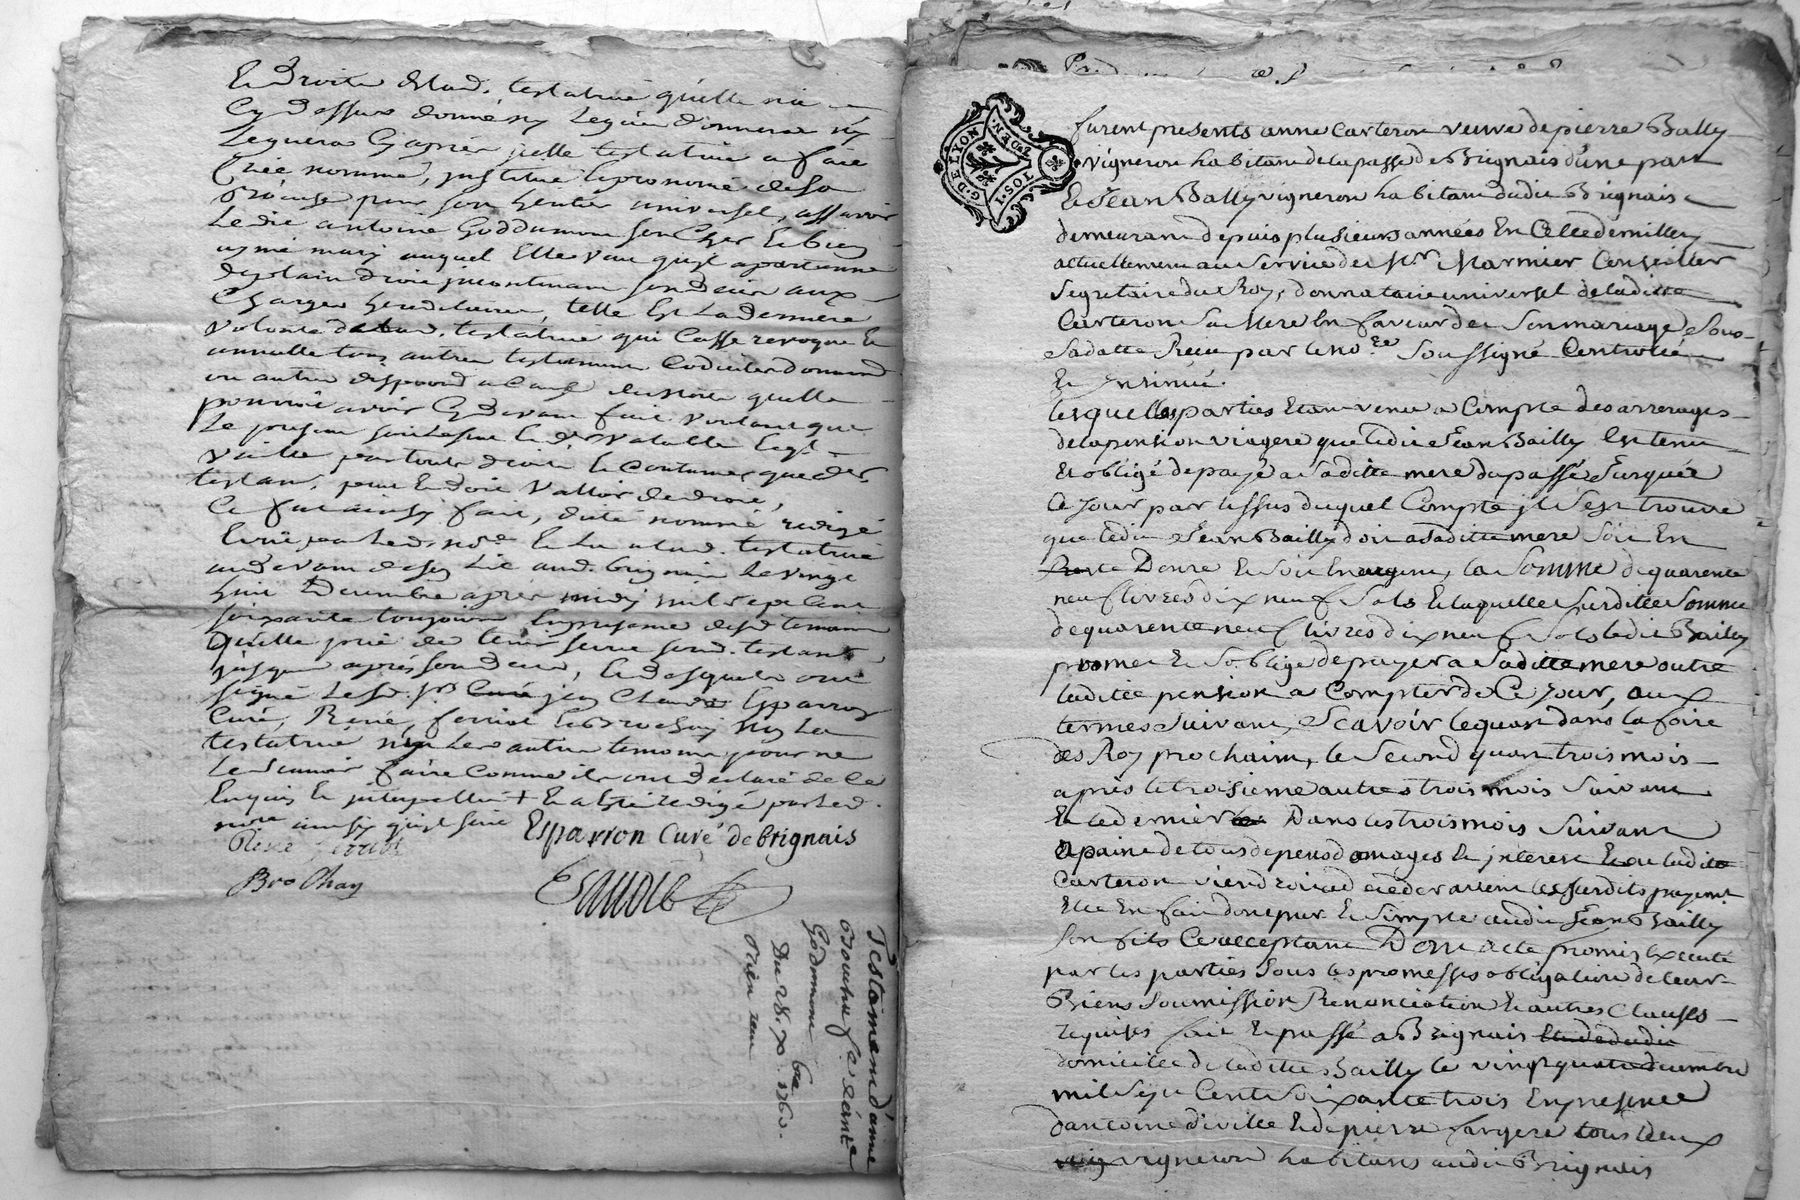 Et droits de lad. testatrice qu'elle n'a
Cy dessus donné ny legué d'onnera ny
leguera Cy après jcelle testatrice a faire
Crée nommé, jnstitué de sa
pour son heritier universel, assavoir
Ledit antoine Goddamom son Cher Et bien
aymé mary auquel Elle veut qu'jl apartienne
de plain droit jncontinant son deces aux
Charges hereditaires, telle Est La derniere
volonté de lad. testatrice qui Casse revoque Et
annulle tous autres testaments Codicilles donnations
ou autres disposition a Cause de mort qu'elle
pourroit avoir Cy devant fait voulant que
Le present soit le seul
vaille par touts droits Et Coutumes que des
testam. peut Et doit Valloir de droit,
Ce fut ainsy fait, dicté nommé redigé
Ecrit par Led. nore Et Lu a lad. testatrice
audevant de son Lit aud. brignais Le vingt
huit Decembre après midy mil sept Cent
soixante toujours En presence desd. temoins
qu'elle prié de tenir secret sond. testant
jusque après son deces, Lesdesquels ont
signé Lesd. sr. Curé jean Claude Esparron
Curé, René ferriot Et Brochay non La
testatrice ny Les autres temoins pour ne
Le scavoir faire Comme ils ont declaré de Ce
Enquis Et jnterpellés + Et a Esté redigé par Led.
nore ainsy qu'jl suit
Esparron Curé de brignais
René ferriot
Brochay
Testament d'anne
brouchu fe. René
Godmom
Du 28. Xbre 1760.
rien receu
G. DE LYON
MOYEN. P.
1. SOL
furent presents anne Carteron veuve de pierre Bally
vigneron habitant de la passe de Brignais d'une part
Et Jean Bally vigneron habitant dudit Brignais
demeurant depuis plusieurs années En Celle de millery
actuellement au service de Mr. Marmier Conseiller
segretaire du Roy, donnataire universel de laditte
Carteron sa Mere En faveur de son mariage sous
sa datte Recu par le nore. soussigné Controllé
Et jnsinué.
lesquelles parties Etant venu a Compte des arrerages
de la pension viagere que ledit Jean Bailly Est tenu
Et obligé de payé a saditte mere du passé Jusquée
Ce jour par lissus duquel Compte jl s'est trouvé
que ledit Jean Bailly doit a saditte mere soit En
Danré Et soit En argent, la somme de quarente
neuf livres dix neuf sols Et laquelle surditte somme
de quarente neuf livres dix neuf sols ledit Bailly
promet Et s'oblige de payer a saditte mere outre
laditte pension a Compter de Ce jour, aux
termes suivant, scavoir le quart dans la foire
des Roy prochain, le second quart trois mois
après le troisieme autres trois mois suivant
Et le dernier Dans les trois mois suivant
a paine de tous depens domages Et jnterest Et ou laditte
Carteron viendroit a decedé avant les surdits payemt.
Elle En fait don pur Et simple audit Jean Bailly
son fils Ce acceptant Dont acte promis Executé
par les parties sous les promesses obligation de leur
Biens soumission Renonciation Et autres Clauses
requises fait Et passé a Brignais
domicille de laditte Bailly le vingt quatre decembre
mil sept Cent soixante trois En presence
d'antoine diville Et de pierre fargere tous deux
vigneron habitans audit Brignais